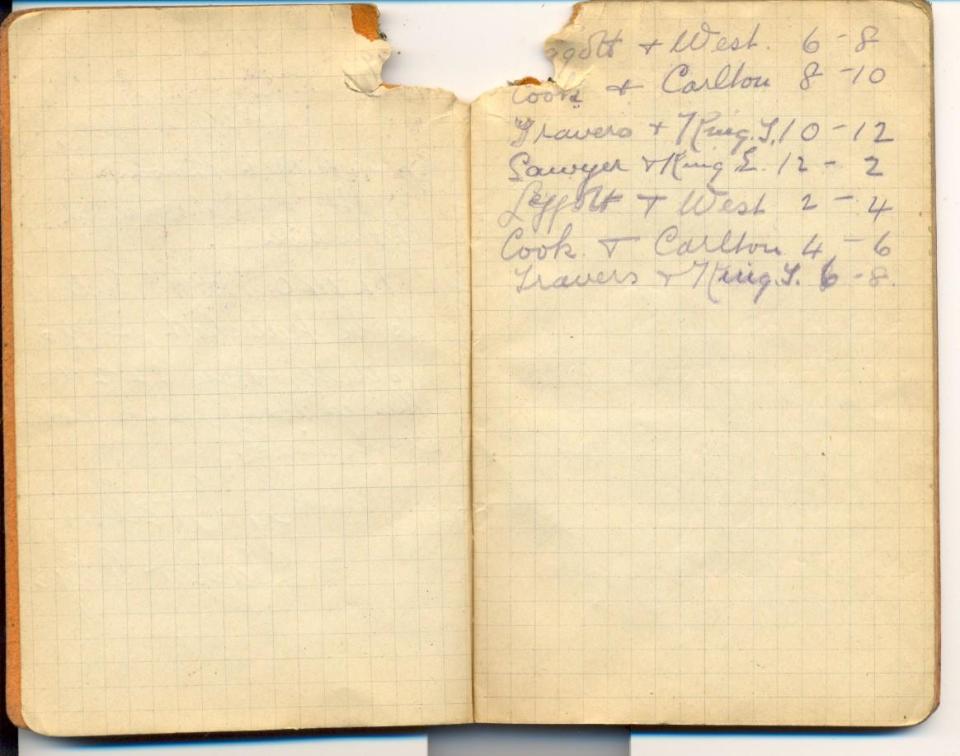 & West. 6-8
Cook & Carlton 8-10
Travers & King.T. 10-12
Sawyer & King E. 12-2
Leggott & West 2-4
Cook & Carlton 4-6
Travers & King.T. 6-8.